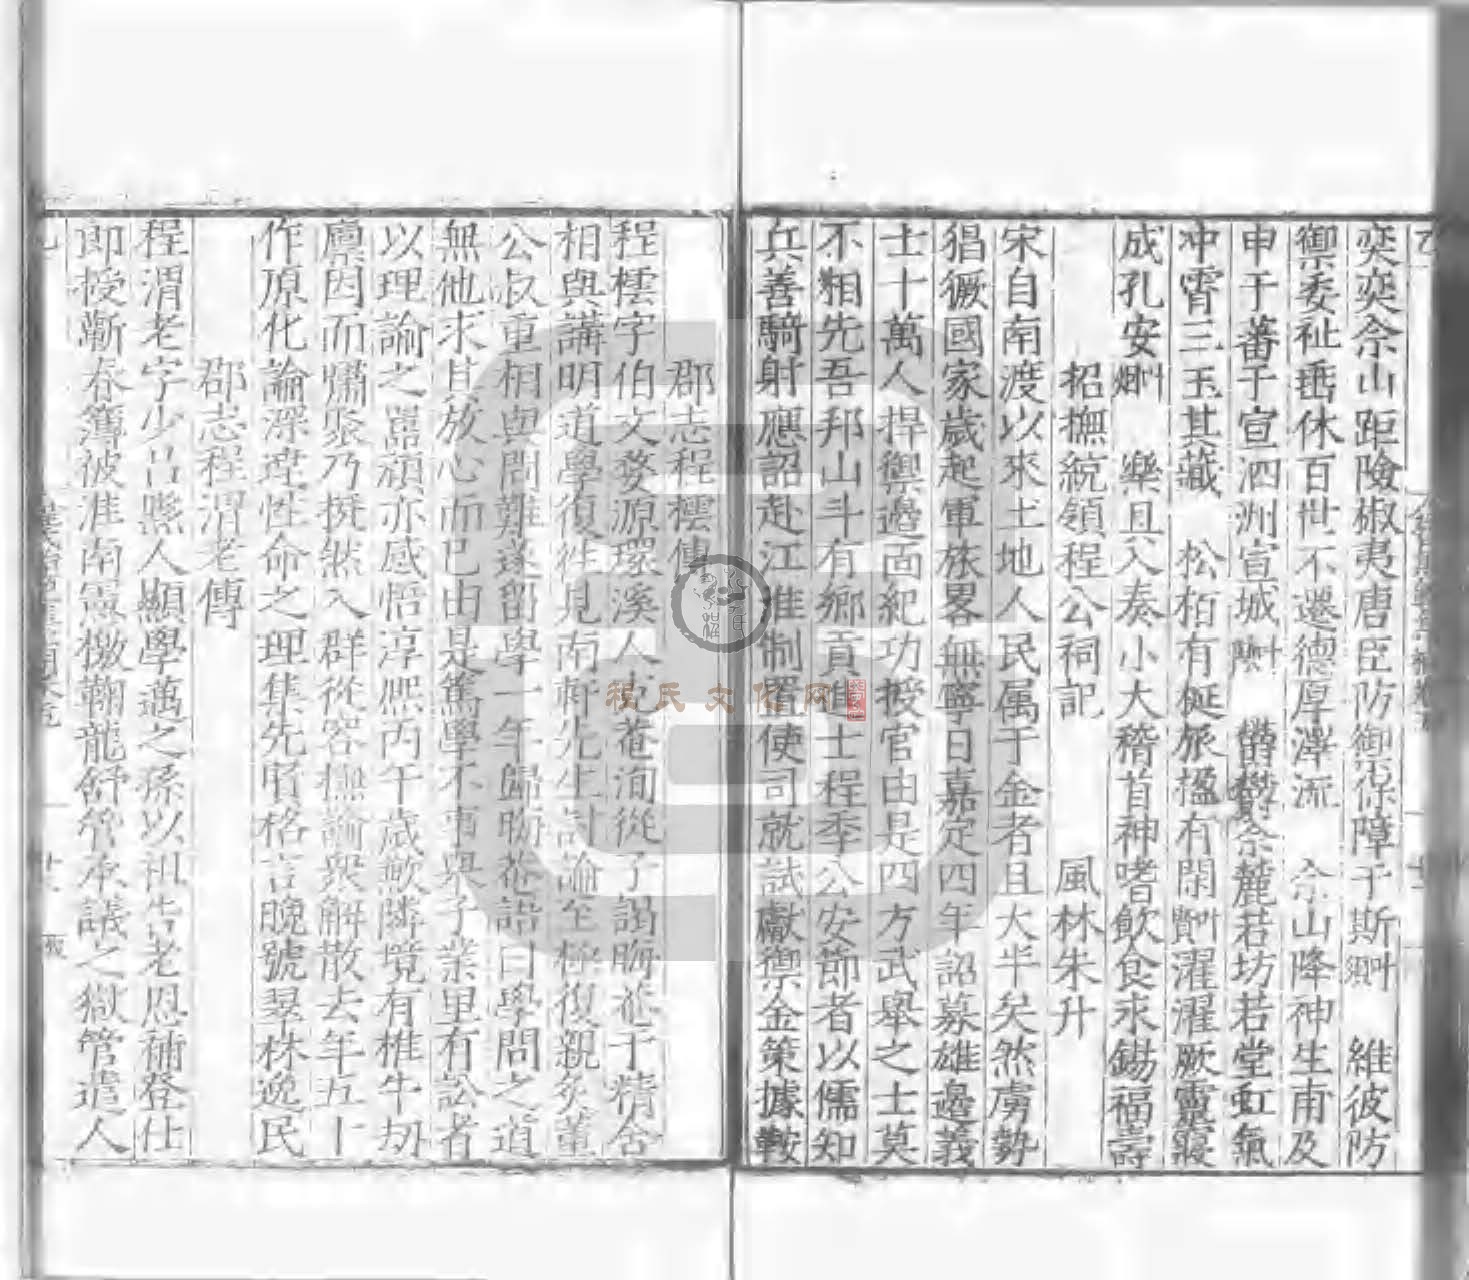 奕奕佘山距險椒夷唐臣防禦保障于斯 維彼防
禦委祉垂休百世不遷德厚澤流 佘山降神生甫及
申于蕃于宣泗洲宣城 鬱鬱佘麓若坊若堂虹氣
冲霄三玉其藏 松柏有梴旅楹有閑 濯濯厥靈寢
成孔安 樂且入奏小大稽首神嗜飲食永錫福壽
招撫統領程公祠記 風林朱升
宋自南渡以來土地人民属于金者且大半矣然虜勢
猖獗國家歲起軍旅畧無寧日嘉定四年詔募雄邊義
士十萬人捍禦邊面紀功授官由是四方武舉之士莫
不相先吾邦山斗有鄉貢進士程季公安節者以儒知
兵善騎射應詔赴江淮制置使司就試獻禦金策據鞍
郡志程樗傳
程樗字伯文婺源環溪人 菴洵從子謁晦菴于精舍
相與講明道學復往見南軒先生討論至極復親炙董
公叔重相與問難遂留學一年歸晦菴語曰學問之道
無他求其放心而已由是篤學不事舉子業里有訟者
以理論之嚚頑亦感悟淳熙丙午歲歉隣境有椎牛刼
廪因而嘯聚乃挺然入群從容撫諭與解散去年五十
作原化論深理性命之理集先賢格言晚號翠林逸民
郡志程渭老傳
程渭老字少呂黟人顯學邁之孫以祖告老恩補登仕
即授蘄春簿被淮南憲檄翱龍舒管承議之獄管遣人
程氏文化网